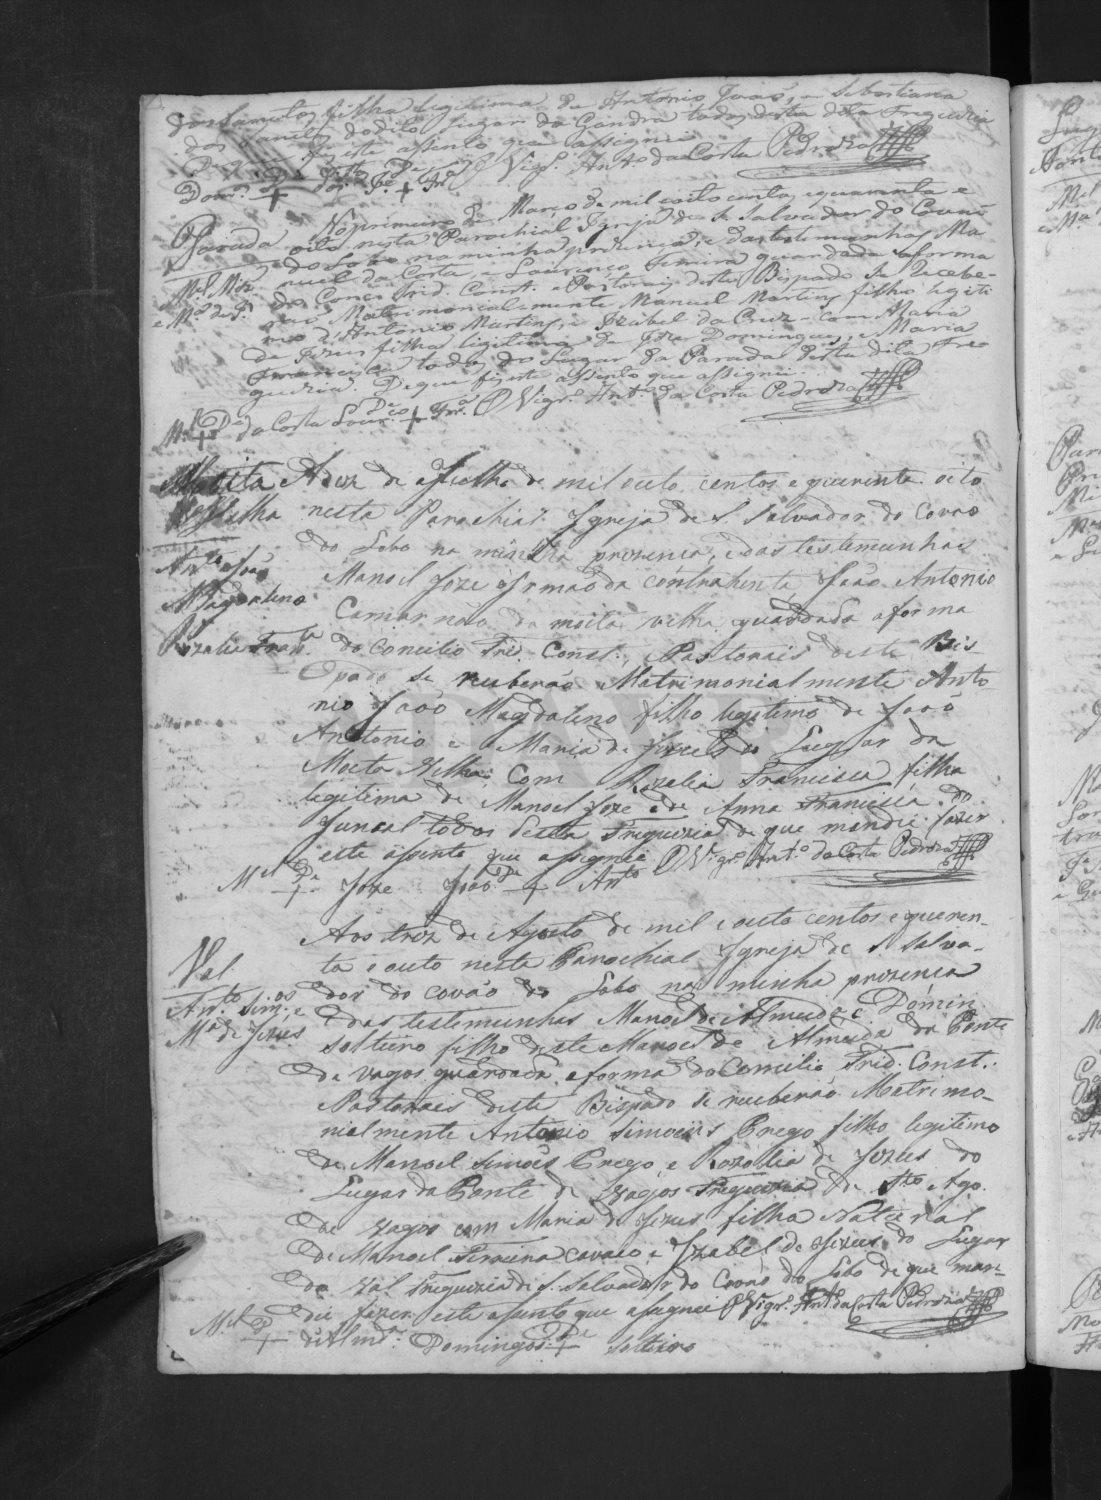 dos Santos filha legitima de Antonio João, e Sebastiana
dos Santos do dito Lugar da Gandra todos desta dita Freguezia
De que fiz este assento que assignei
O Vigr.º Ant.º da Costa Pedroza
Parada
M.el Miz
e M.ª de J.
No primeiro de Março de mil oito centos e quarenta e
oito nesta Parochial Igreja de S. Salvador do Covão
do Lobo na minha prezença, e das testemunhas Ma
nuel da Costa, e Lourenço Ferreira guardada a forma
do Conc. Trid. Const. e Pastorais deste Bispado Se Recebe-
rão Matrimonialmente Manuel Martins filho legiti
mo d'Antonio Martins, e Izabel da Cruz - com Maria
de Jezus filha legitima de Joze Domingues, e Maria
Francisca todos do Lugar da Parada desta dita Fre
guezia. De que fiz este assento que assignei.
O Vigr.º Ant.º da Costa Pedroza
M.el De + da Costa Lour.ço De + Frr.ª
Moita
Velha
Ant.º João
Magdaleno
Rozalia Fran.ca
A doz de Julho de mil outo centos e quarenta oito
nesta Parochial Igreja de S. Salvador do Covão
do Lobo na minha prezenca, e das testemunhas
Manoel Joze Irmão da contrahente, João Antonio
Camarnão da moita velha guardada a forma
do Concilio Trid. Const., e Pastorais deste Bis-
pado se receberão Matrimonialmente Anto
nio João Magdaleno filho legitimo de João
Antonio e Maria de Jezus do Lugar da
Moita Velha, Com Rozalia Francisca filha
legitima de Manoel Joze e de Anna Francisca do
Juncal todos desta Freguezia de que mandei fazer
este assento que assignei O Vigr.º Ant.º da Costa Pedroza
M.el De + Joze João De + Ant.º
Val
Ant.º Sim.os e
M.ª de Jezus
Aos troz de Agosto de mil e outo centos e queren-
ta e outo nesta Parochial Igreja de S. Salva-
dor do Covão do Lobo na minha prezenca
das testemunhas Manoel de Almeida e Domin
solteiro filho deste Manoel de Almeida da Ponte
de Vagos guardada a forma do Concilio Trid. Const.
Pastorais deste Bispado se receberão Matrimo-
nialmente Antonio Simoens Crego filho legitimo
de Manoel Simoes Crego, e Rozalia de Jezus do
Lugar da Ponte de Vagos Freguezia de Sto Ago.
de Vagos com Maria de Jezus filha Natural
de Manoel Ferreira e Izabel de Jezus do Lugar
do Val Freguezia de S. Salvador do Covão do Lobo de que man-
dei fazer este assento que assignei O Vigr.º Ant.º da Costa Pedroza
M.el De + d'Alm.da Domingos De + solteiro